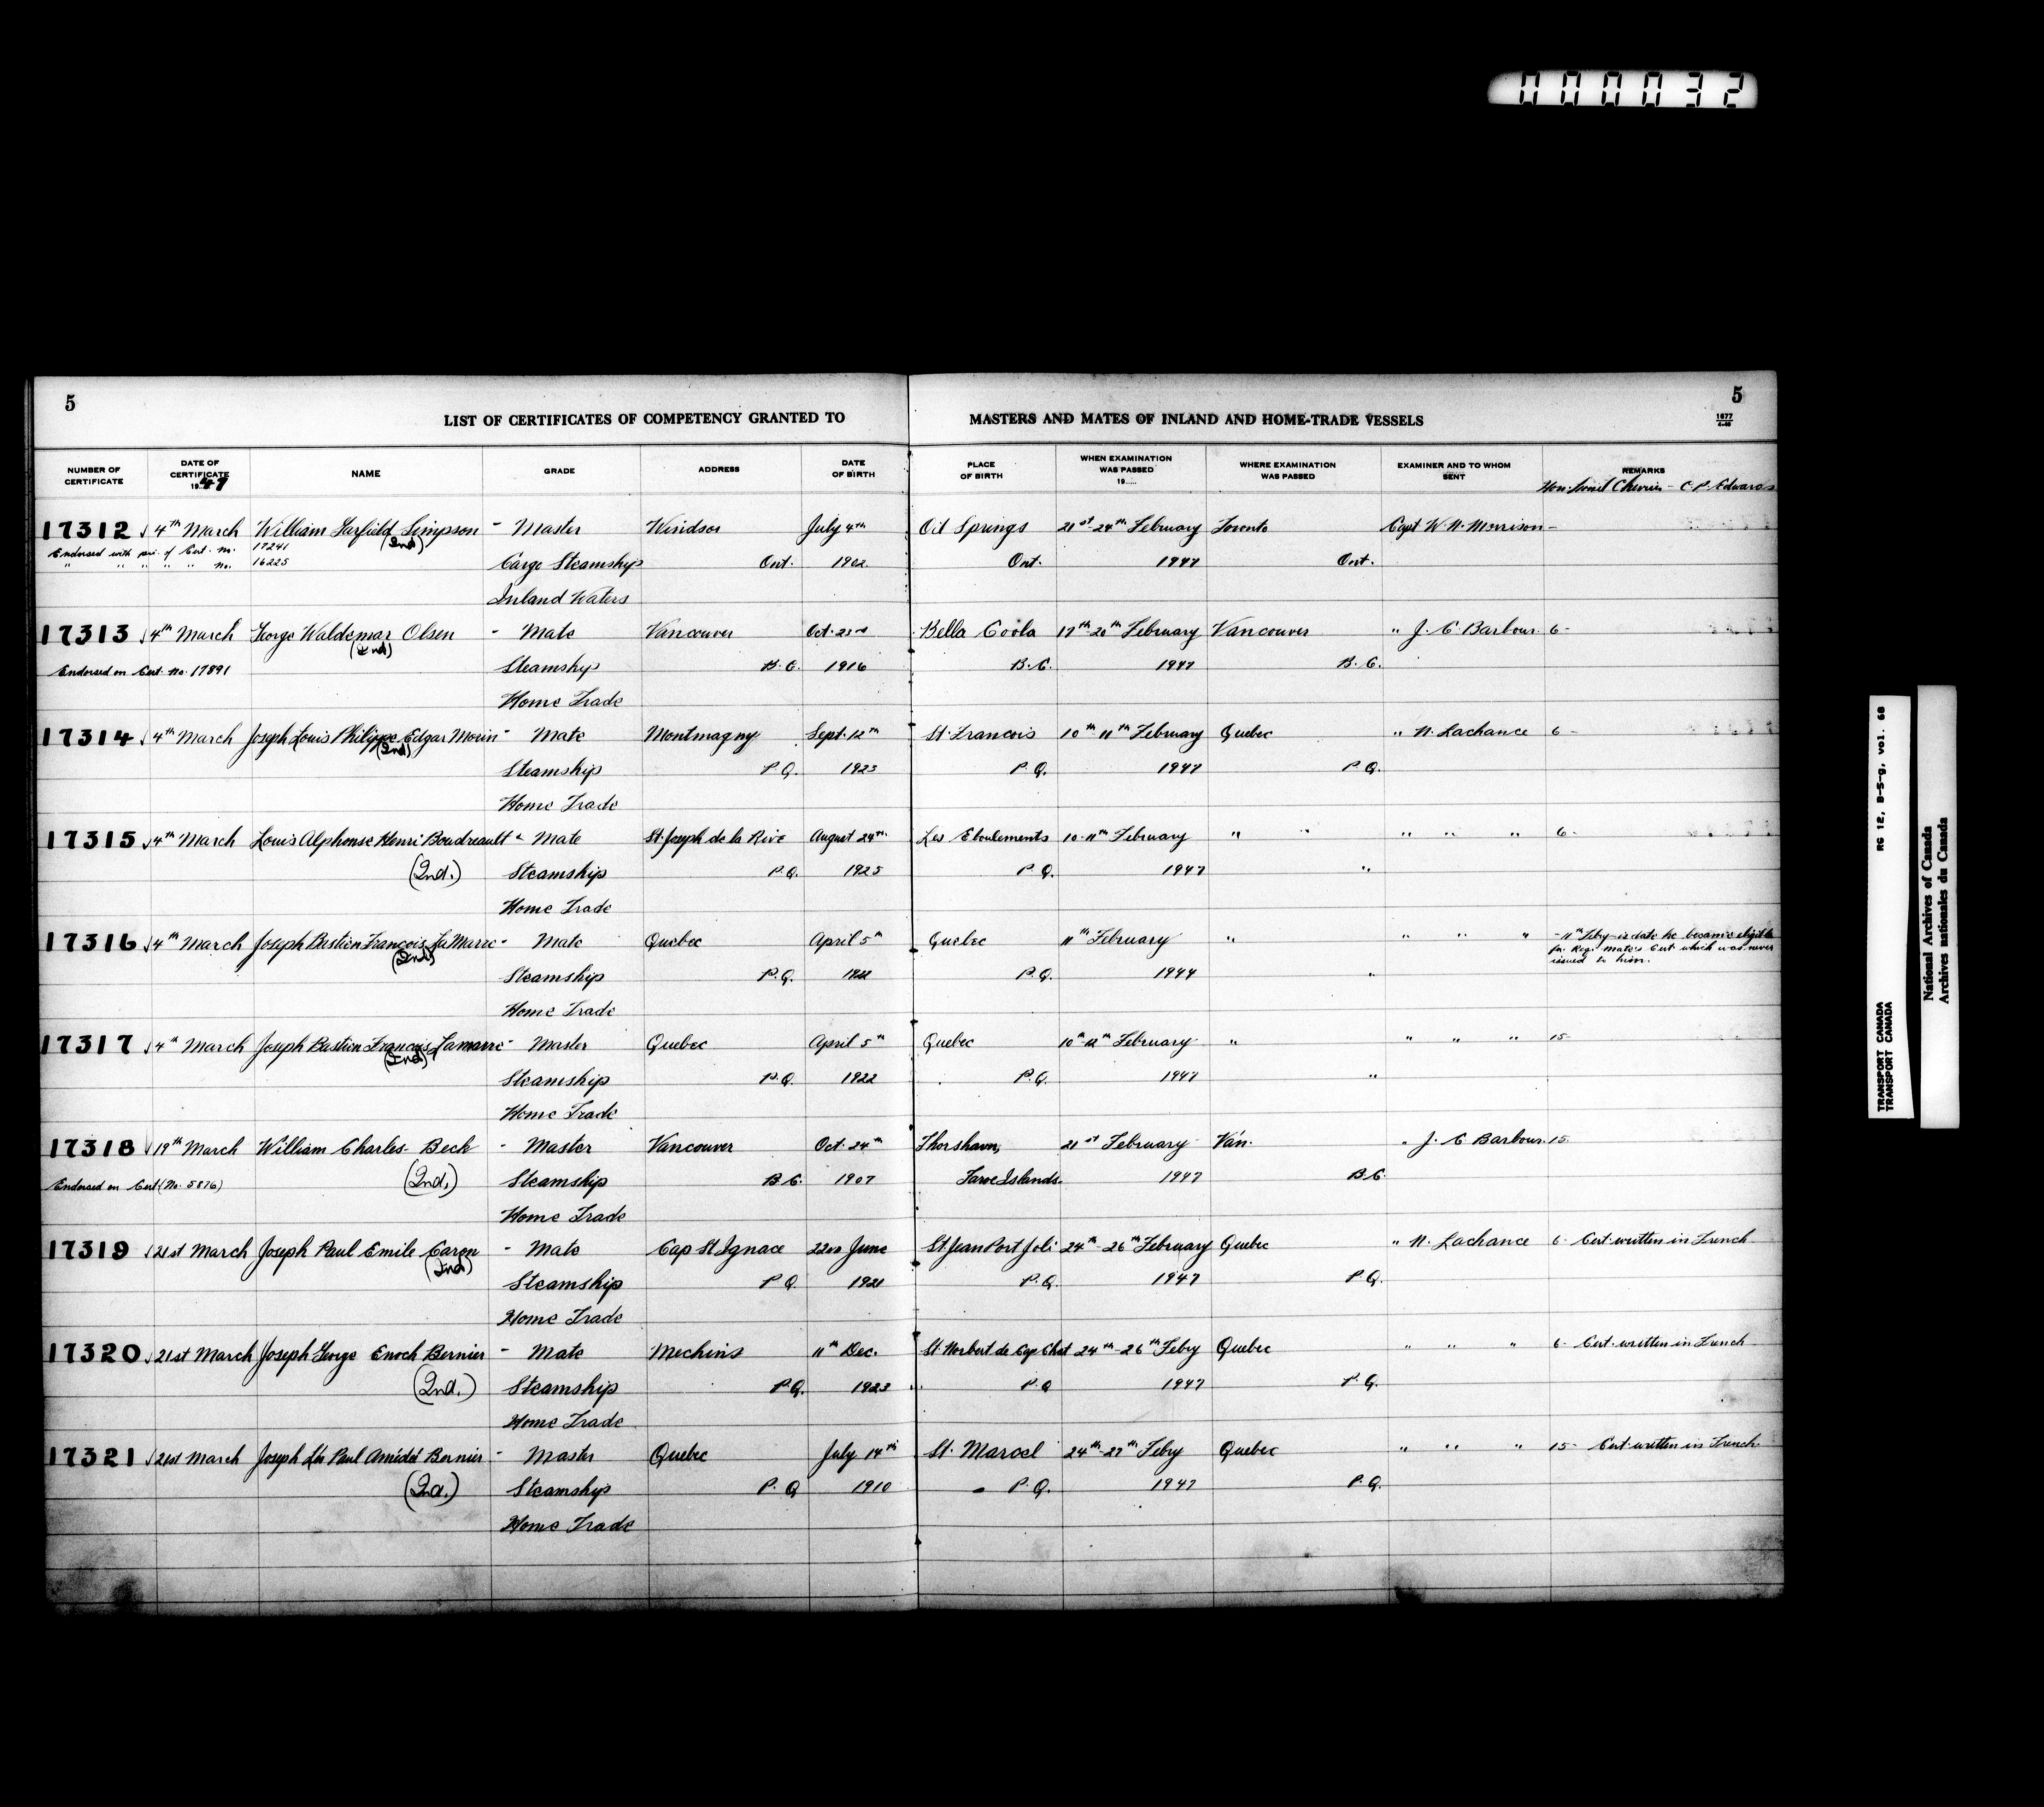 000032
5
5
LIST OF CERTIFICATES OF COMPETENCY GRANTED TO MASTERS AND MATES OF INLAND AND HOME-TRADE VESSELS
1677
4-46
NUMBER OF CERTIFICATE DATE OF CERTIFICATE 1947 NAME GRADE ADDRESS DATE OF BIRTH PLACE OF BIRTH WHEN EXAMINATION WAS PASSED 19..... WHERE EXAMINATION WAS PASSED EXAMINER AND TO WHOM SENT REMARKS
Hon. Lionel Chevrier - C. P. Edwards
17312 4th March William Garfield Simpson - Master Windsor July 4th Oil Springs 21st-24th February Toronto Capt W. N. Morrison -
(Ind)
Endorsed with par. of Cert. No. 17241
" " " " " No. 16225 Cargo Steamship Ont. 1902. Ont. 1947 Ont.
Inland Waters
17313 4th March George Waldemar Olsen - Mate Vancouver Oct. 23rd Bella Coola 17th-20th February Vancouver " J. C. Barbour 6-
(Ind)
Endorsed on Cert. No. 17891 Steamship B.C. 1916 B.C. 1947 B.C.
Home Trade
17314 4th March Joseph Louis Philippe Edgar Morin - Mate Montmagny Sept. 12th St. Francois 10th 11th February Quebec " N. Lachance 6-
(Ind)
Steamship P.Q. 1923 P.Q. 1947 P.Q.
Home Trade
17315 4th March Louis Alphonse Henri Boudreault - Mate St. Joseph de la Rive August 24th Les Eboulements 10-11th February " " " " " 6-
(Ind.) Steamship P.Q. 1925 P.Q. 1947 "
Home Trade
17316 4th March Joseph Bastien Francois LaMarre - Mate Quebec April 5th Quebec 11th February " " " " - 11th Feby is date he became eligible
for Reg. Mate's Cert which was never
issued to him.
(Ind.)
Steamship P.Q. 1922 P.Q. 1944 "
Home Trade
17317 4th March Joseph Bastien Francois Lamarre - Master Quebec April 5th Quebec 10th-12th February " " " " 15-
(Ind)
Steamship P.Q. 1922 P.Q. 1947 "
Home Trade
17318 19th March William Charles Beck - Master Vancouver Oct. 24th Thorshavn, 21st February Van. " J. C Barbour 15-
Endorsed on Cert (No. 5876) (Ind.) Steamship B.C. 1907 Faroe Islands. 1947 B.C.
Home Trade
17319 21st March Joseph Paul Emile Caron - Mate Cap St Ignace 22nd June St Jean Port Joli 24th-26th February Quebec " N. Lachance 6- Cert. written in French
(Ind)
Steamship P.Q. 1921 P.Q. 1947 P.Q.
Home Trade
17320 21st March Joseph George Enoch Bernier - Mate Mechins 11th Dec. St. Norbert de Cap Chat 24th-26th Feby Quebec " " " 6- Cert. written in French
(Ind.) Steamship P.Q. 1923 P.Q 1947 P.Q.
Home Trade
17321 21st March Joseph Léo Paul Amédé Bernier - Master Quebec July 14th St. Marcel 24th-27th Feby Quebec " " " 15- Cert. written in French
(Ind.) Steamship P.Q 1910 P.Q. 1947 P.Q.
Home Trade
TRANSPORT CANADA RG 12, B-5-g, vol. 68
TRANSPORT CANADA
National Archives of Canada
Archives nationales du Canada